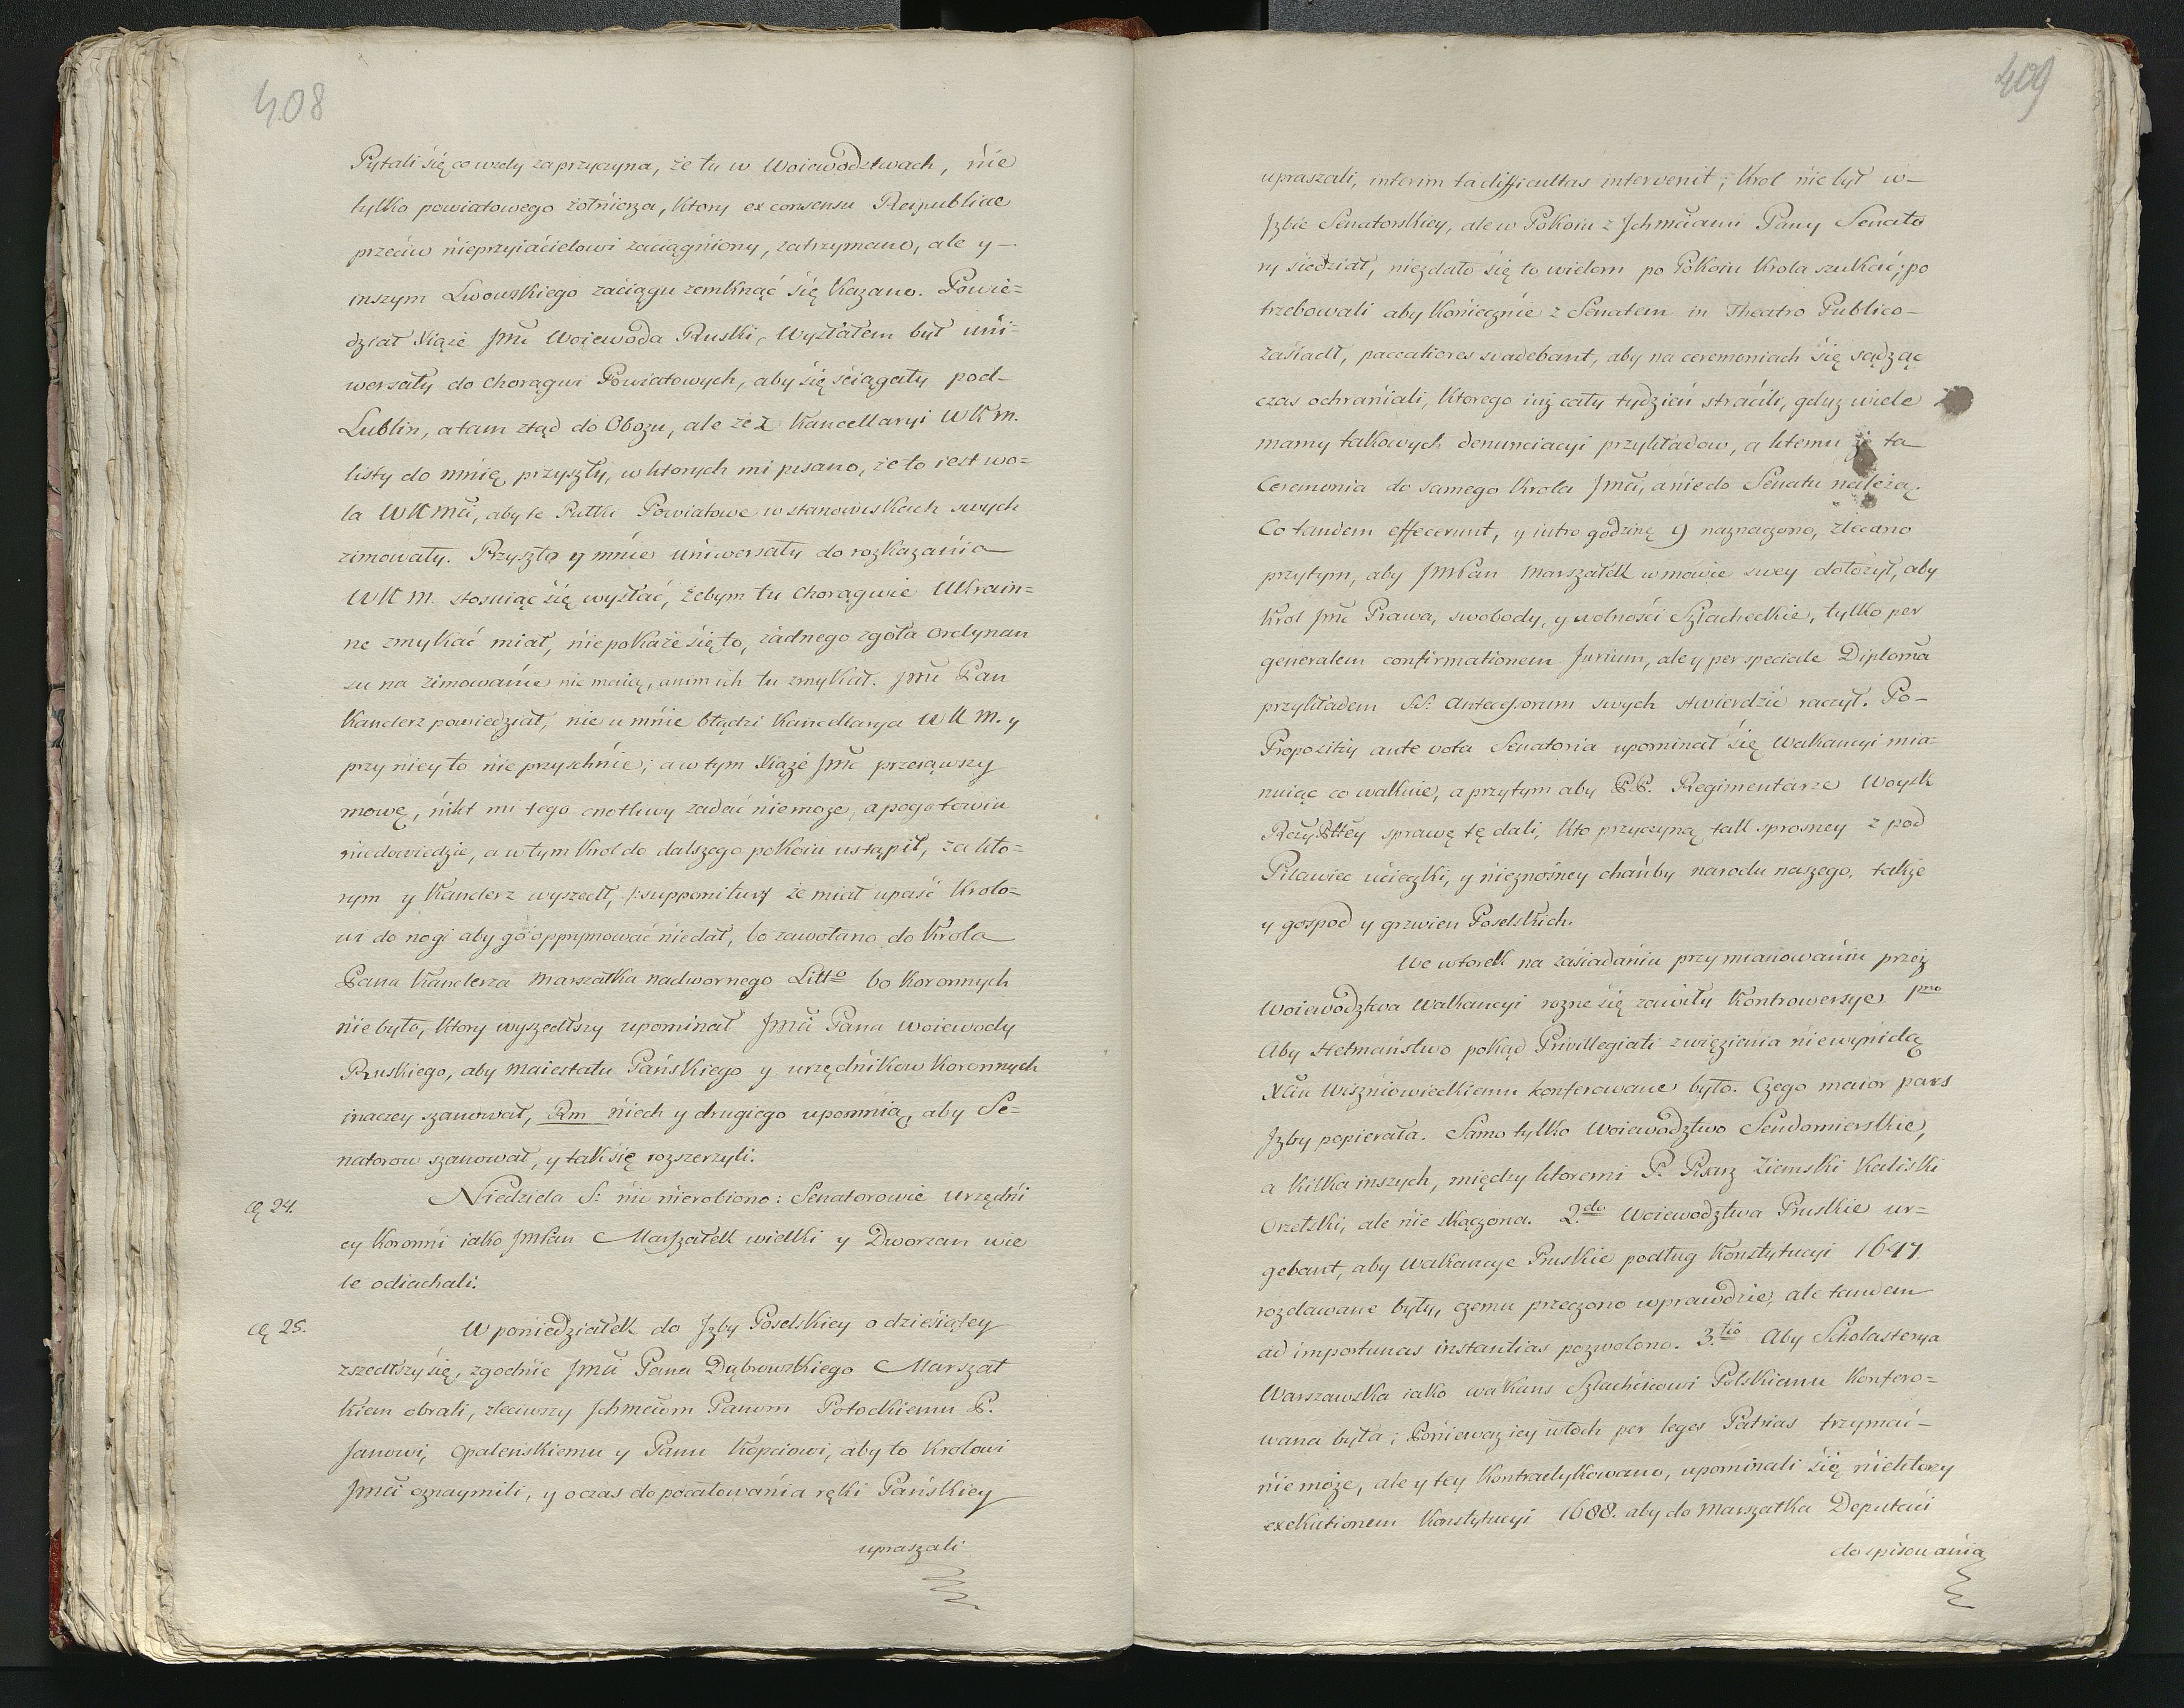 408
Pytali się co wzdy za przyczyna, że tu w Woiewodztwach, nie
tylko powiatowego żołnierza, ktory ex consensu Reipublicae
przeciw nieprzyiacielowi zaciągniony, zatrzymano, ale y —
inszym Lwowskiego zaciągu zemknąć się kazano. Powie=
dział Xiąże Jmć Woiewoda Ruski, Wysłałem był uni=
wersały do chorągwi Powiatowych, aby się ściągały pod-
Lublin, a tam ztąd do Obozu, ale że z Kancellaryi WKM.
listy do mnię przyszły, w ktorych mi pisano, że to iest wo=
la WKMći, aby te Pułki Powiatowe w stanowiskach swych
zimowały. Przyszło y mnie uniwersały do rozkazania
WKM. stosuiąc się wysłać, żebym tu Chorągwie Ukrain=
ne zmykać miał, nie pokaże się to, żadnego zgoła Ordynan
su na zimowanie nie maią, anim ich tu zmykał. Jmć Pan
Kanclerz powiedział, nie u mnie błądzi Kancellarya WKM. y
przy niey to nie przyschnie; a w tym Xiąże Jmć przeiąwszy
mowę, nikt mi tego cnotliwy zadać nie może, a pogotowiu
niedowiedzie, a w tym Krol do dalszego pokoiu ustąpił, za kto=
rym y Kanclerz wyszedł, /:supponitur/ że miał upaść Krolo=
wi do nogi aby go opprymować niedał, bo zawołano do Krola
Pana Kanclerza Marszałka nadwornego Litto bo Koronnych
nie było, ktory wyszedłszy upominał Jmći Pana Woiewody
Ruskiego, aby Maiestatu Pańskiego y urzędnikow Koronnych
inaczey szanował, Rm niech y drugiego upomnią, aby Se=
natorow szanował, y tak się rozszerzyli.
Cę 24. Niedziela S: nic nierobiono: Senatorowie Urzędni
cy Koronni iako JmPan Marszałek wielki y Dworzan wie
le odiachali.
Cę 25. W poniedziałek do Jzby Poselskiey o dziesiątey
zszedłszy się, zgodnie Jmći Pana Dąbrowskiego Marszał
kiem obrali, zleciwszy Jchmciom Panom Potockiemu P.
Janowi, Opaleńskiemu y Panu Kopciowi, aby to Krolowi
Jmći oznaymili, y o czas do pocałowania ręki Pańskiey
upraszali
409
upraszali, interim ta difficultas intervenit; Krol nie był w-
Jzbie Senatorskiey, ale w Pokoiu z Jchmciami Pany Senato
ry siedział, niezdało się to wielom po Pokoiu Krola szukać; po
trzebowali aby koniecznie z Senatem in Theatro Publico-
zasiadł, paccatiores svadebant, aby na ceremoniach się sądząc
czas ochraniali, ktorego iuż cały tydzień stracili, gdyż wiele
mamy takowych denunciacyi przykładow, a ktemu że ta
Ceremonia do samego Krola Jmći, a nie do Senatu należą.
Co tandem effecerunt, y iutro godzinę 9 naznaczono, zlecano
przytym, aby JmPan Marszałek w mowie swey dołożył, aby
Krol Jmć Prawa, swobody, y wolności Szlacheckie, tylko per
generalem confirmationem Jurium, ale y per speciale Diploma
przykładem SS: Antecessorum swych stwierdzić raczył. Po-
Propozitiy ante vota Senatoria upominał się Wakancyi mia=
nuiąc co wakuie, a przytym aby PP. Regimentarze Woysk
RczyPltey sprawę tę dali, kto przyczyną tak sprosney z pod
Pilawiec ucieczki, y nieznośney chańby narodu naszego. także
y gospod y grzwien Poselskich.
We wtorek na zasiadaniu przy mianowaniu przez
Woiewodztwa Wakancyi rozne się zawiły Kontrowersye. pmo
Aby Hetmaństwo pokąd Privillegiati z więzienia nie wynidą
XCiu Wiszniowieckiemu konferowane było. Czego maior pars
Jzby popierała. Samo tylko Woiewodztwo Sendomierskie,
a kilka inszych, między ktoremi P. Pisarz Ziemski Kaliski
Orzelski, ale nie skączona. 2.do Woiewodztwa Pruskie ur=
gebant, aby Wakancye Pruskie podług Konstytucyi 1647.
rozdawane były, czemu przeczono wprawdzie, ale tandem
ad importunas instantias pozwolono. 3.tio Aby Scholasterya
Warszawska iako wakans Szlachcicowi Polskiemu konfero=
wana była; Ponieważ iey włoch per leges Patrias trzymać-
nie może, ale y tey Kontradykowano, upominali się niektorzy
exekutionem Konstytucyi 1688. aby do Marszałka Deputaći
do spisowania